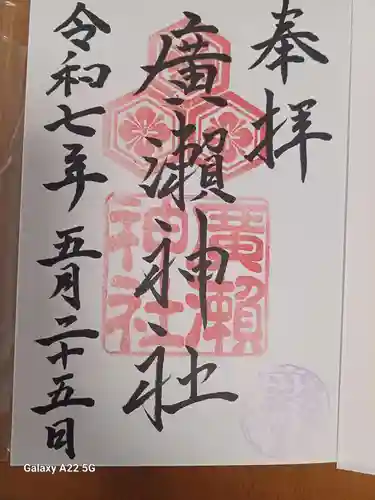 奉拝
廣瀬神社
令和七年五月二十五日
廣瀬神社
Galaxy A22 5G